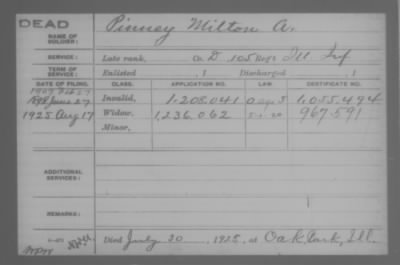 DEAD
NAME OF SOLDIER: Pinney Milton A.
SERVICE: Late rank, Co. D, 105 Reg't Ill Inf
TERM OF SERVICE: Enlisted , 1 Discharged , 1
DATE OF FILING. CLASS. APPLICATION NO. LAW CERTIFICATE NO.
1898 June 27 Invalid, 1.208.041 1.055.494
1925 Aug 17 Widow, 1,236.062 5-1-20 967.591
Minor,
ADDITIONAL SERVICES:
REMARKS:
Died July 30, 1925, at Oak Park, Ill.